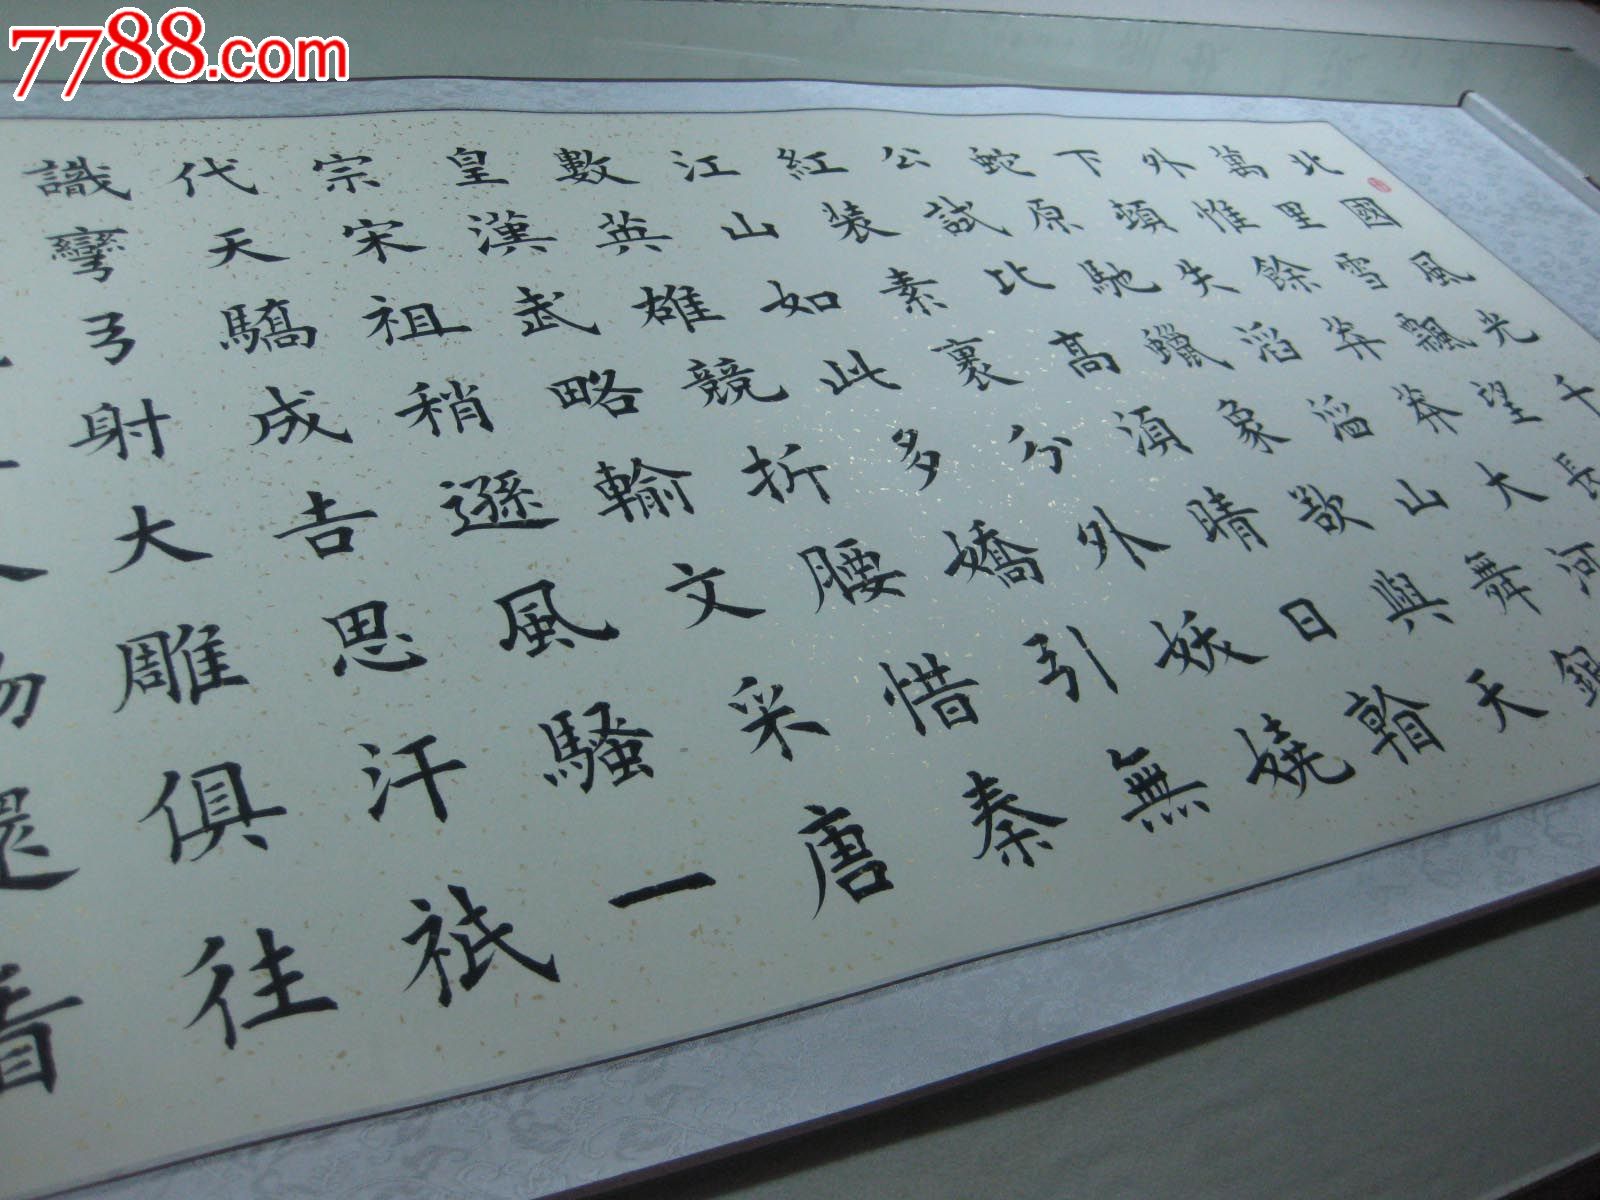 7788.com
北國風光千
萬里雪飄望長
外惟餘莽莽大河
下頓失滔滔山舞銀
蛇原馳蠟象欲與天
公試比高湏晴日
紅裝素裹分外妖嬈
江山如此多嬌引無
數英雄競折腰惜秦
皇漢武略輸文采唐
宗宋祖稍遜風騷一
代天驕成吉思汗祇
識彎弓射大雕俱往